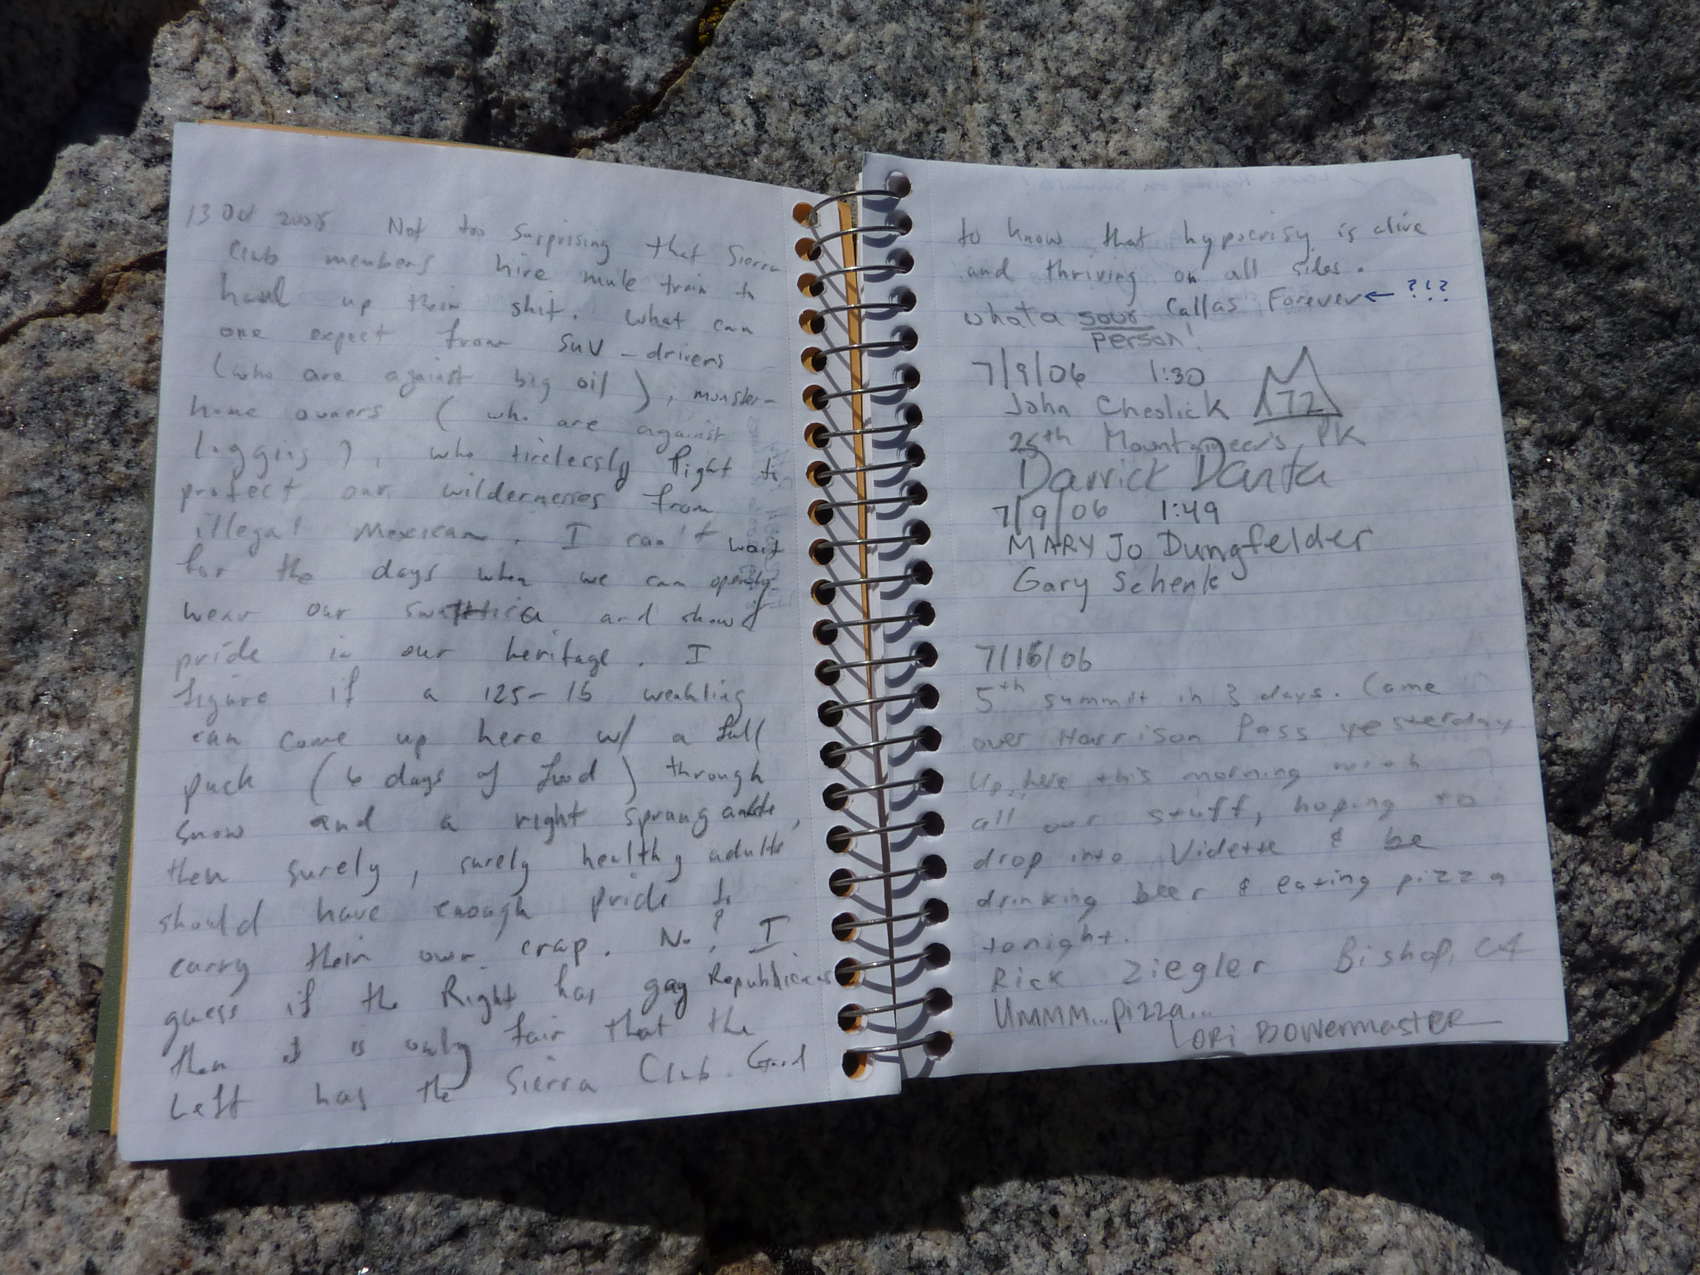 13 Oct 2005 Not too surprising that Sierra
Club members hire mule train to
haul up their shit. What can
one expect from SUV-drivers
(who are against big oil), monster-
home owners (who are against
logging), who tirelessly fight to
protect our wildernesses from
illegal Mexicans. I can't wait
for the days when we can openly
wear our swastica and show
pride in our heritage. I
figure if a 125-lb weakling
can come up here w/ a full
pack (6 days of food) through
snow and a right sprung ankle,
then surely, surely healthy adults
should have enough pride to
carry their own crap. No? I
guess if the Right has gay Republicans
then it is only fair that the
Left has the Sierra Club. Good
to know that hypocrisy is alive
and thriving on all sides.
what a sour Callas Forever ← ?!?
person!
7/9/06 1:30
John Cheslick 72
25th Mountaineer's PK
Darrick Danta
7/9/06 1:49
MARY Jo Dungfelder
Gary Schenk
7/16/06
5th summit in 3 days. Came
over Harrison Pass yesterday
up here this morning with
all our stuff, hoping to
drop into Vidette & be
drinking beer & eating pizza
tonight.
Rick Ziegler Bishop, CA
Ummm...pizza...
LORI BOWERMASTER